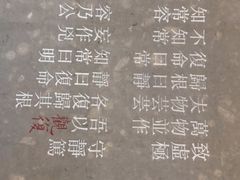 致虛極　守靜篤
萬物並作　吾以觀復
夫物芸芸　各復歸其根
歸根曰靜　靜曰復命
復命曰常　知常曰明
不知常　妄作凶
知常容　容乃公